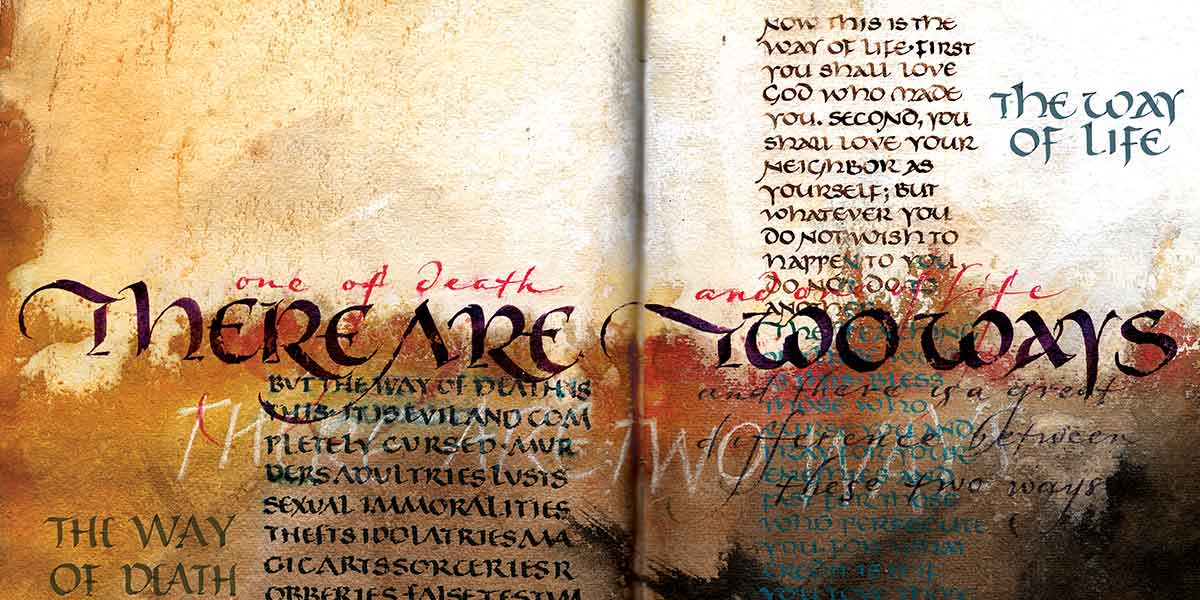 one of death
and one of life
THERE ARE TWO WAYS
and there is a great
difference between
these two ways
THERE ARE TWO WAYS
BUT THE WAY OF DEATH IS
THIS · IT IS EVIL AND COM
PLETELY CURSED MUR
DERS ADULTRIES LUSTS
SEXUAL IMMORALITIES
THEFTS IDOLATRIES MA
GIC ARTS SORCERIES R
OBBERIES FALSE TESTIM
THE WAY
OF DEATH
NOW THIS IS THE
WAY OF LIFE · FIRST
YOU SHALL LOVE
GOD WHO MADE
YOU. SECOND, YOU
SHALL LOVE YOUR
NEIGHBOR AS
YOURSELF; BUT
WHATEVER YOU
DO NOT WISH TO
HAPPEN TO YOU
DO NOT DO TO
THE WAY
OF LIFE
IS THIS · BLESS
THOSE WHO
CURSE YOU AND
PRAY FOR YOUR
ENEMIES AND
FAST FOR THOSE
WHO PERSECUTE
YOU FOR WHAT
CREDIT IS IT IF
YOU LOVE THOSE